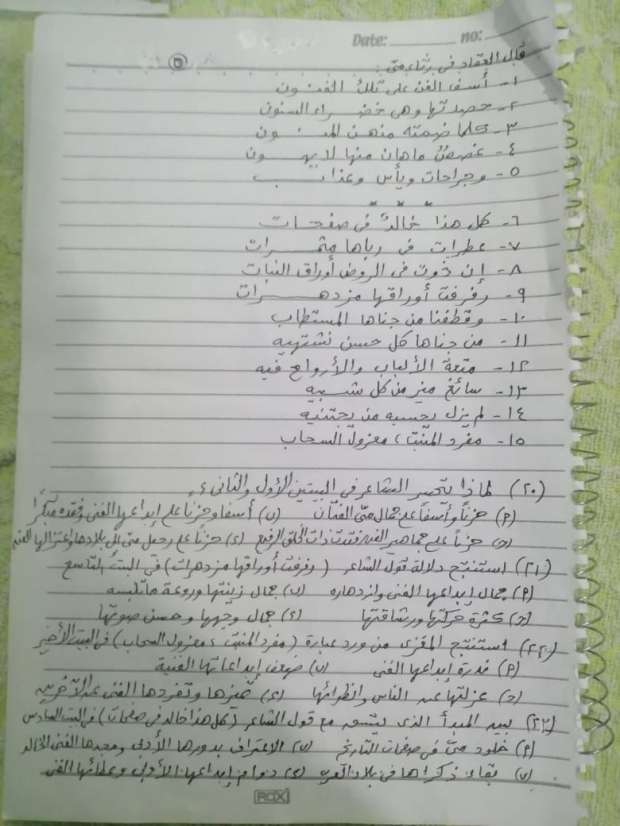 Date: no:
قال العقاد فى رثاء مى:
١- أسف الفن على تلك الفنون
٢- حصدتها وهى خضراء السنون
٣- كلما ضمته منهن المنون
٤- غصص ما هان منها لا يهون
٥- وجراحات ويأس وعذاب
٦- كل هذا خالد فى صفحات
٧- عطرات فى رباها مثمرات
٨- إن ذوت فى الروض أوراق النبات
٩- رفرفت أوراقها مزدهرات
١٠- وقطفنا من جناها المستطاب
١١- من جناها كل حسن نشتهيه
١٢- متعة الألباب والأرواح فيه
١٣- سائغ ميز من كل شبيه
١٤- لم يزل يحسبه من يجتنيه
١٥- مفرد المنبت، معزول السحاب
(٢٠) لماذا يتحسر الشاعر فى البيتين الأول والثانى؟
(٢) حزنا وأسفا على جمال مى الفتان (ب) أسفا وحزنا على إبداعها الفنى وفقده مبكرا
(ج) حزنا على جماهير الفن فقدت ذات الخلق الرفيع (د) حزنا على رحيل مى إلى بلادها واعتزالها الفنى
(٢١) استنتج دلالة قول الشاعر (رفرفت أوراقها مزدهرات) فى البيت التاسع
(٢) جمال إبداعها الفنى وازدهاره (ب) جمال زينتها وروعة ما تلبسه
(ج) كثرة حركتها ورشاقتها (د) جمال وجهها وحسن صوتها
(٢٢) استنتج المغزى من ورد عبارة (مفرد المنبت، معزول السحاب) فى البيت الأخير
(٢) قدرة إبداعها الفنى (ب) ضعف إبداعاتها الفنية
(ج) عزلتها عن الناس وانطوائها (د) تميزها وتفردها الفنى عن الآخرين
(٢٣) بين المبدأ الذى يتسق مع قول الشاعر (كل هذا خالد فى صفحات) فى البيت السادس
(٢) خلود مى فى صفحات التاريخ (ب) الاعتراف بدورها الأدبى ومجدها الفنى الخالد
(ج) بقاء ذكراها فى بلاد العرب (د) دوام إبداعها الأدبى وعطائها الفنى
ROX